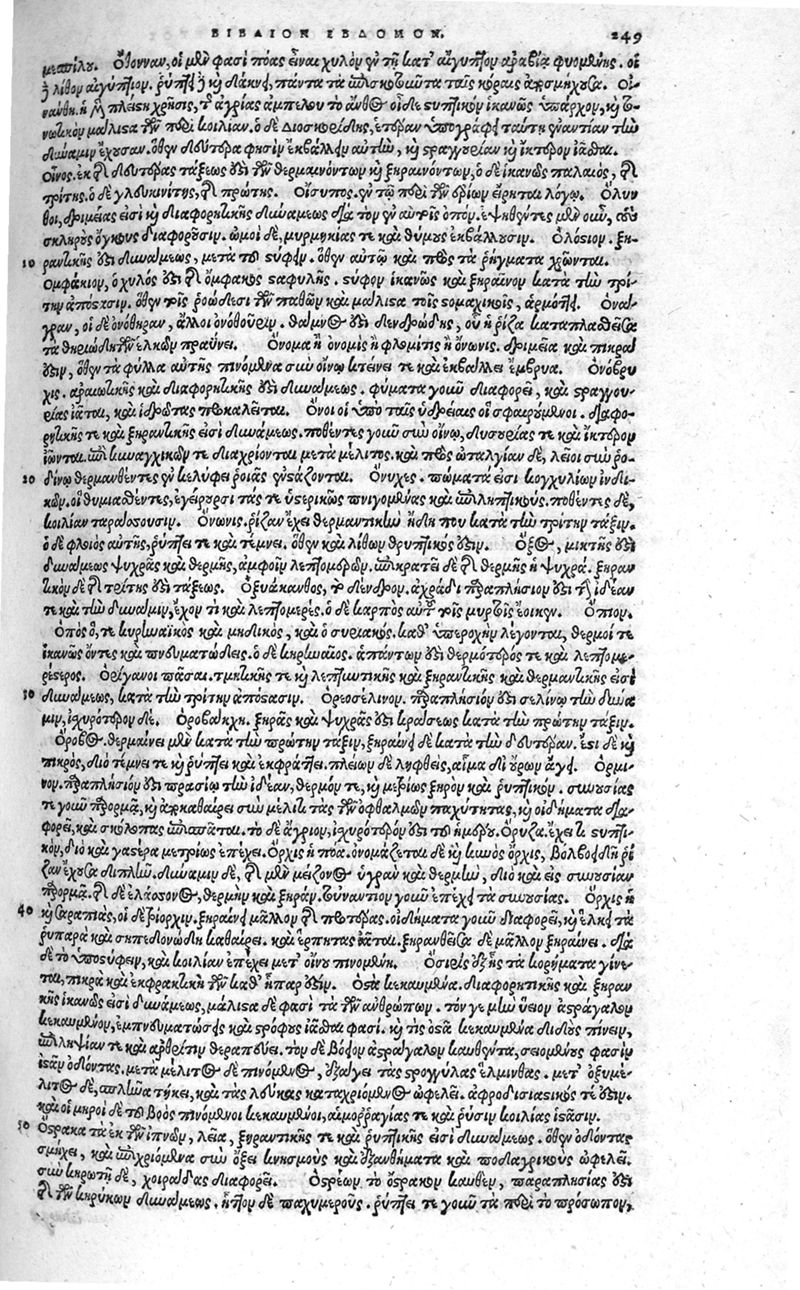 ΒΙΒΛΙΟΝ ΕΒΔΟΜΟΝ. 249
μεσπίλου. Ὀθονναν, οἱ μὲν φασὶ πόας εἶναι χυλὸν ἐν τῇ κατ' αἴγυπτον ἀραβίᾳ φυομένης. οἱ
λίθον αἰγύπτιον. ῥύπτει καὶ δάκνει, πάντα τὰ ἐπισκοτοῦντα ταῖς κόραις ἀποσμήχουσα. Οἰ-
νάνθη. ἡ πλείστη χρῆσις, τῆς ἀγρίας ἀμπέλου τὸ ἄνθος οἶδε στυπτικὸν ἱκανῶς ὑπάρχον, καὶ
μάλιστα τῶν περὶ κοιλίαν. ὁ δὲ Διοσκορίδης, ἑτέραν ὑπογράφει ταύτῃ ἐναντίαν τὴν
δύναμιν ἔχουσαν. ὅθεν δεύτερα φησὶν ἐκβάλλειν αὐτὴν, καὶ στραγγουρίαν καὶ ἴκτερον ἰᾶσθαι.
Οἶνος. ἐκ τῆς δευτέρας τάξεως ἐστὶ τῶν θερμαινόντων καὶ ξηραινόντων, ὁ δὲ ἱκανῶς παλαιὸς, τῆς
τρίτης. ὁ δὲ γλευκινίτης, τῆς πρώτης. Οἴσυπος. ἐν τῷ περὶ τῶν ἐρίων εἴρηται λόγῳ. Ὄλυν
θοι, δριμείας εἰσὶ καὶ διαφορητικῆς δυνάμεως διὰ τὸν ἐν αὐτοῖς ὀπόν. ἑψηθέντες μὲν οὖν, τοὺς
σκληροὺς ὄγκους διαφοροῦσιν. ὠμοὶ δὲ, μυρμηκίας τε καὶ θύμους ἐκβάλλουσιν. Ὁλόστιον. ξη-
10 ραντικῆς ἐστὶ δυνάμεως, μετὰ τοῦ στύφειν. ὅθεν αὐτῷ καὶ πρὸς τὰ ῥήγματα χρῶνται.
Ὀμφάκιον, ὁ χυλὸς ἐστὶ τῆς ὄμφακος σταφυλῆς. στύφον ἱκανῶς καὶ ξηραῖνον κατὰ τὴν τρί-
την ἀπόστασιν. ὅθεν τοῖς ῥοώδεσι τῶν παθῶν καὶ μάλιστα τοῖς στομαχικοῖς, ἁρμόττει. Ὀνά-
γραν, οἱ δὲ ὀνόθηραν, ἄλλοι ὀνόθουριν. θάμνος ἐστὶ δενδρώδης, οὗ ἡ ῥίζα καταπλασθεῖσα
τὰ θηριώδη τῶν ἑλκῶν πραΰνει. Ὄνομα ἢ ὀνομὶς ἢ φλομίτις ἢ ὄνωνις. δριμεῖα καὶ πικρὰ
ἐστὶν, ὅθεν τὰ φύλλα αὐτῆς πινόμενα σὺν οἴνῳ κτείνει τε καὶ ἐκβάλλει ἔμβρυα. Ὀνόβρυ
χις. ἀραιωτικῆς καὶ διαφορητικῆς ἐστὶ δυνάμεως. φύματα γοῦν διαφορεῖ, καὶ στραγγου-
ρίας ἰᾶται, καὶ ἱδρῶτας προκαλεῖται. Ὄνοι οἱ ὑπὸ ταῖς ὑδρείαις οἱ σφαιρούμενοι. διαφο-
ρητικῆς τε καὶ ξηραντικῆς εἰσὶ δυνάμεως. ποθέντες γοῦν σὺν οἴνῳ, δυσουρίας τε καὶ ἴκτερον
ἰῶνται. ἐπὶ κυναγχικῶν τε διαχρίονται μετὰ μέλιτος. καὶ πρὸς ὠταλγίαν δὲ, λεῖοι σὺν ῥο-
20 δίνῳ θερμανθέντες ἐν κελύφει ῥοιᾶς ἐνστάζονται. Ὄνυχες. πώματα εἰσὶ κογχυλίων ἰνδι-
κῶν. οἳ θυμιαθέντες, ἐγείρουσι τάς τε ὑστερικῶς πνιγομένας καὶ ἐπιληπτικούς. ποθέντες δὲ,
κοιλίαν ταράσσουσιν. Ὄνωνις. ῥίζαν ἔχει θερμαντικὴν ἤδη που κατὰ τὴν τρίτην τάξιν.
ὁ δὲ φλοιὸς αὐτῆς, ῥύπτει τε καὶ τέμνει. ὅθεν καὶ λίθων θρυπτικός ἐστιν. Ὄξος, μικτῆς ἐστὶ
δυνάμεως ψυχρᾶς καὶ θερμῆς, ἀμφοῖν λεπτομερῶν. ἐπικρατεῖ δὲ τῆς θερμῆς ἡ ψυχρά. ξηραν
τικὸν δὲ τῆς τρίτης ἐστὶ τάξεως. Ὀξυάκανθος, τὸ δένδρον. ἀχράδι παραπλήσιον ἐστὶ τήν τε ἰδέαν
τε καὶ τὴν δύναμιν, ἔχον τὶ καὶ λεπτομερές. ὁ δὲ καρπὸς αὐτοῦ τοῖς μύρτοις ἔοικεν. Ὄπιον.
Ὀπὸς ὅ, τε κυρηναϊκὸς καὶ μηδικὸς, καὶ ὁ συριακός. καθ' ὑπεροχὴν λέγονται, θερμοί τε
ἱκανῶς ὄντες καὶ πνευματώδεις. ὁ δὲ κυρηναῖος. ἁπάντων ἐστὶ θερμότερός τε καὶ λεπτομε-
ρέστερος. Ὀρίγανοι πᾶσαι. τμητικῆς τε καὶ λεπτυντικῆς καὶ ξηραντικῆς καὶ θερμαντικῆς εἰσὶ
30 δυνάμεως, κατὰ τὴν τρίτην ἀπόστασιν. Ὀρεοσέλινον. παραπλήσιόν ἐστι σελίνῳ τὴν δύνα
μιν, ἰσχυρότερον δέ. Ὀροβάκχη. ξηρᾶς καὶ ψυχρᾶς ἐστὶ κράσεως κατὰ τὴν πρώτην τάξιν.
Ὄροβος. θερμαίνει μὲν κατὰ τὴν πρώτην τάξιν, ξηραίνει δὲ κατὰ τὴν δευτέραν. ἔστι δὲ καὶ
πικρὸς, διὸ τέμνει τε καὶ ῥύπτει καὶ ἐκφράττει. πλείων δὲ ληφθεὶς, αἷμα δι' οὔρων ἄγει. Ὅρμι-
νον. παραπλήσιόν ἐστι πρασίῳ τὴν ἰδέαν, θερμόν τε, καὶ μετρίως ξηρὸν καὶ ῥυπτικόν. συνουσίας
τε γοῦν παρορμᾷ, καὶ ἀποκαθαίρει σὺν μέλιτι τὰς τῶν ὀφθαλμῶν παχύτητας, καὶ οἰδήματα δια-
φορεῖ, καὶ σκόλοπας ἐπισπᾶται. τὸ δὲ ἄγριον, ἰσχυρότερόν ἐστι τοῦ ἡμέρου. Ὄρυζα. ἔχει τι στυπτι-
κὸν, διὸ καὶ γαστέρα μετρίως ἐπέχει. Ὄρχις ἡ πόα. ὀνομάζεται δὲ καὶ κυνὸς ὄρχις, βολβοειδῆ ῥί
ζαν ἔχουσα διπλῆν. δύναμιν δὲ, τῆς μὲν μείζονος ὑγρὰν καὶ θερμὴν, διὸ καὶ εἰς συνουσίαν
παρορμᾷ. τῆς δὲ ἐλάσσονος, θερμὴν καὶ ξηράν. τοὐναντίον γοῦν ἐπέχει τὰς συνουσίας. Ὄρχις ἡ
40 καὶ σαραπιὰς, οἱ δὲ τριορχιν. ξηραίνει μᾶλλον τῆς προτέρας. οἰδήματα γοῦν διαφορεῖ, καὶ ἕλκη τὰ
ῥυπαρὰ καὶ σηπεδονώδη καθαίρει. καὶ ἕρπητας ἰᾶται. ξηρανθεῖσα δὲ μᾶλλον ξηραίνει. διὰ
δὲ τὸ ὑποστύφειν, καὶ κοιλίαν ἐπέχει μετ' οἴνου πινομένη. Ὄσιρις ἐξ ἧς τὰ κορήματα γίνε-
ται, πικρὰ καὶ ἐκφρακτικὴ τῶν καθ' ἧπαρ ἐστίν. Ὀστᾶ κεκαυμένα. διαφορητικῆς καὶ ξηραν
τικῆς ἱκανῶς εἰσὶ δυνάμεως, μάλιστα δὲ φασὶ τὰ τῶν ἀνθρώπων. τόν γε μὴν ὕειον ἀστράγαλον
κεκαυμένον, ἐμπνευματώσεις καὶ στρόφους ἰᾶσθαι φασί. καὶ τις ὀστᾶ κεκαυμένα διδοὺς πίνειν,
ἐπιληψίαν τε καὶ ἀρθρῖτιν θεραπεύει. τὸν δὲ βόειον ἀστράγαλον καυθέντα, σειομένους φασὶν
ἱστᾶν ὀδόντας. μετὰ μέλιτος δὲ πινόμενος, ἐξάγει τὰς στρογγύλας ἕλμινθας. μετ' ὀξυμέ-
λιτος δὲ, σπλῆνα τήκει, καὶ τὰς λεύκας καταχριόμενος ὠφελεῖ. ἀφροδισιαστικός τε ἐστίν.
καὶ οἱ μηροὶ δὲ τοῦ βοὸς πινόμενοι κεκαυμένοι, αἱμορραγίας τε καὶ ῥύσιν κοιλίας ἱστᾶσιν.
50 Ὄστρακα τὰ ἐκ τῶν ἰπνῶν, λεῖα, ξηραντικῆς τε καὶ ῥυπτικῆς εἰσὶ δυνάμεως. ὅθεν ὀδόντας
σμήχει, καὶ ἐπιχριόμενα σὺν ὄξει κνησμοὺς καὶ ἐξανθήματα καὶ ποδαγρικοὺς ὠφελεῖ.
σὺν κηρωτῇ δὲ, χοιράδας διαφορεῖ. Ὀστρέων τὸ ὄστρακον καυθὲν, παραπλησίας ἐστὶ
τῆς τῶν κηρύκων δυνάμεως. ἧττον δὲ παχυμεροῦς. ῥύπτει τε γοῦν τὰ περὶ τὸ πρόσωπον,